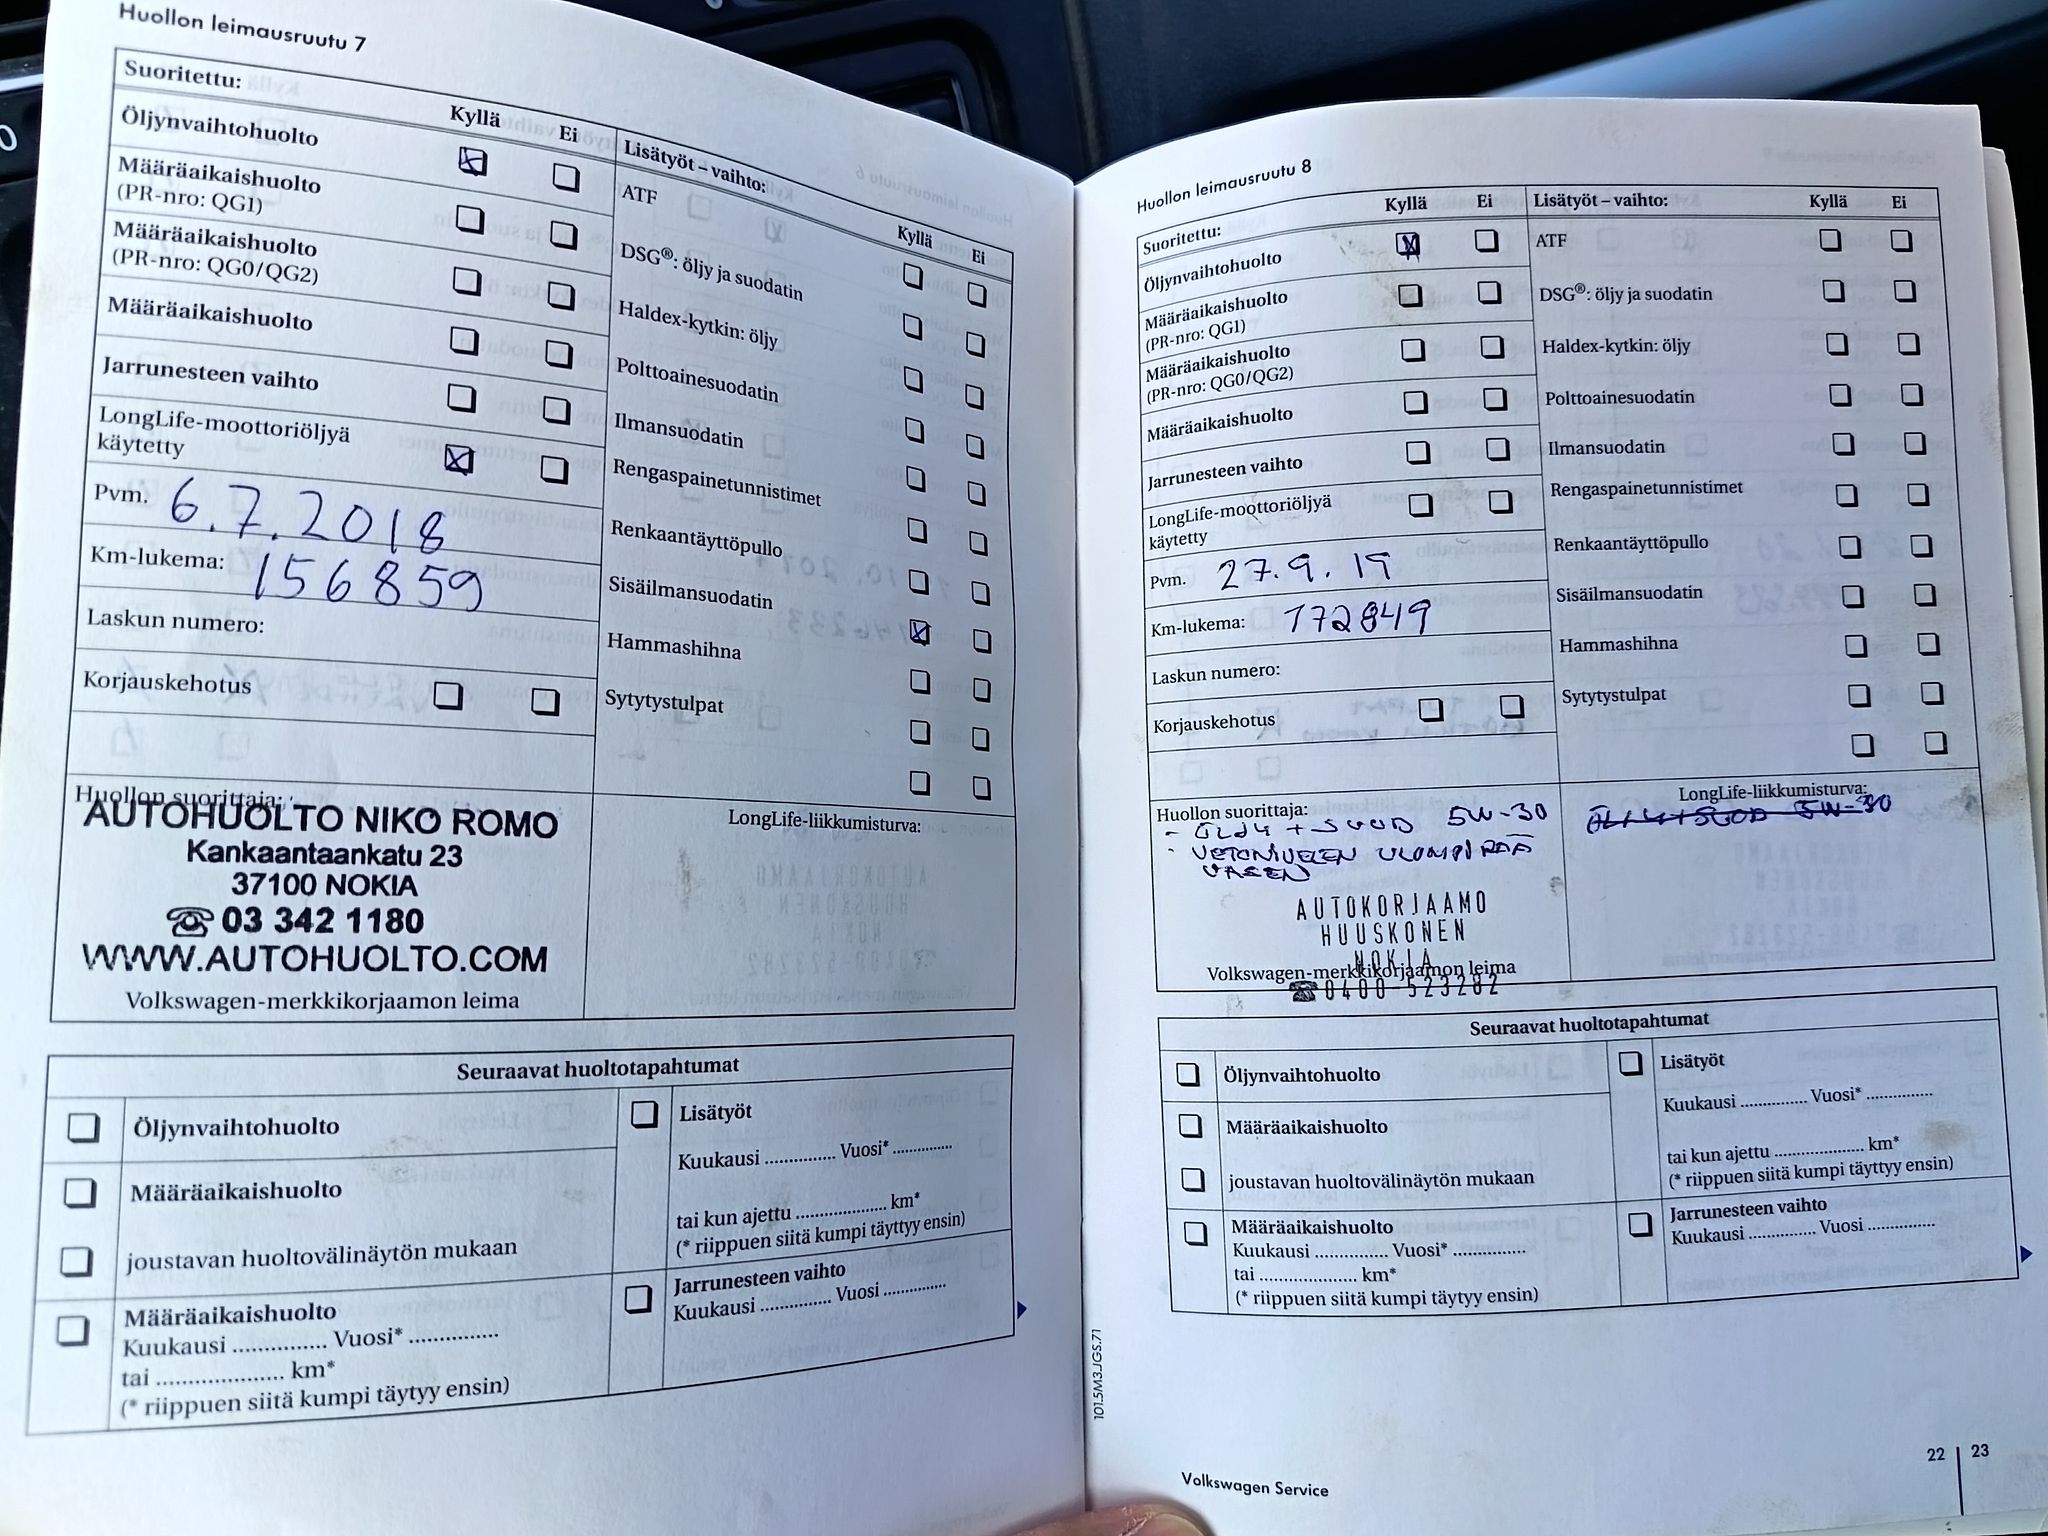 Huollon leimausruutu 7
Suoritettu:
Kyllä Ei
Öljynvaihtohuolto
Määräaikaishuolto
(PR-nro: QG1)
Määräaikaishuolto
(PR-nro: QG0/QG2)
Määräaikaishuolto
Jarrunesteen vaihto
LongLife-moottoriöljyä
käytetty
Pvm. 6.7.2018
Km-lukema: 156859
Laskun numero:
Korjauskehotus
Lisätyöt – vaihto:
Kyllä Ei
ATF
DSG®: öljy ja suodatin
Haldex-kytkin: öljy
Polttoainesuodatin
Ilmansuodatin
Rengaspainetunnistimet
Renkaantäyttöpullo
Sisäilmansuodatin
Hammashihna
Sytytystulpat
Huollon suorittaja:
AUTOHUOLTO NIKO ROMO
Kankaantaankatu 23
37100 NOKIA
☎ 03 342 1180
WWW.AUTOHUOLTO.COM
Volkswagen-merkkikorjaamon leima
LongLife-liikkumisturva:
Seuraavat huoltotapahtumat
Öljynvaihtohuolto
Määräaikaishuolto
joustavan huoltovälinäytön mukaan
Määräaikaishuolto
Kuukausi ............... Vuosi* ...............
tai .................... km*
(* riippuen siitä kumpi täytyy ensin)
Lisätyöt
Kuukausi ............... Vuosi* .............
tai kun ajettu .................... km*
(* riippuen siitä kumpi täyttyy ensin)
Jarrunesteen vaihto
Kuukausi ............... Vuosi .............
Huollon leimausruutu 8
Suoritettu:
Kyllä Ei
Öljynvaihtohuolto
Määräaikaishuolto
(PR-nro: QG1)
Määräaikaishuolto
(PR-nro: QG0/QG2)
Määräaikaishuolto
Jarrunesteen vaihto
LongLife-moottoriöljyä
käytetty
Pvm. 27.9.19
Km-lukema: 172849
Laskun numero:
Korjauskehotus
Lisätyöt – vaihto:
Kyllä Ei
ATF
DSG®: öljy ja suodatin
Haldex-kytkin: öljy
Polttoainesuodatin
Ilmansuodatin
Rengaspainetunnistimet
Renkaantäyttöpullo
Sisäilmansuodatin
Hammashihna
Sytytystulpat
Huollon suorittaja:
- ÖLJY + SUOD 5W-30
- VETONIVELEN ULOMPI PÄÄ
VASEN
AUTOKORJAAMO
HUUSKONEN
NOKIA
Volkswagen-merkkikorjaamon leima
☎ 0400-523282
LongLife-liikkumisturva:
ÖLJY+SUOD 5W-30
Seuraavat huoltotapahtumat
Öljynvaihtohuolto
Määräaikaishuolto
joustavan huoltovälinäytön mukaan
Määräaikaishuolto
Kuukausi ............... Vuosi* ...............
tai .................... km*
(* riippuen siitä kumpi täytyy ensin)
Lisätyöt
Kuukausi ............... Vuosi* ..............
tai kun ajettu .................... km*
(* riippuen siitä kumpi täyttyy ensin)
Jarrunesteen vaihto
Kuukausi ............... Vuosi ...............
101.5M3.JGS.71
Volkswagen Service
22 23